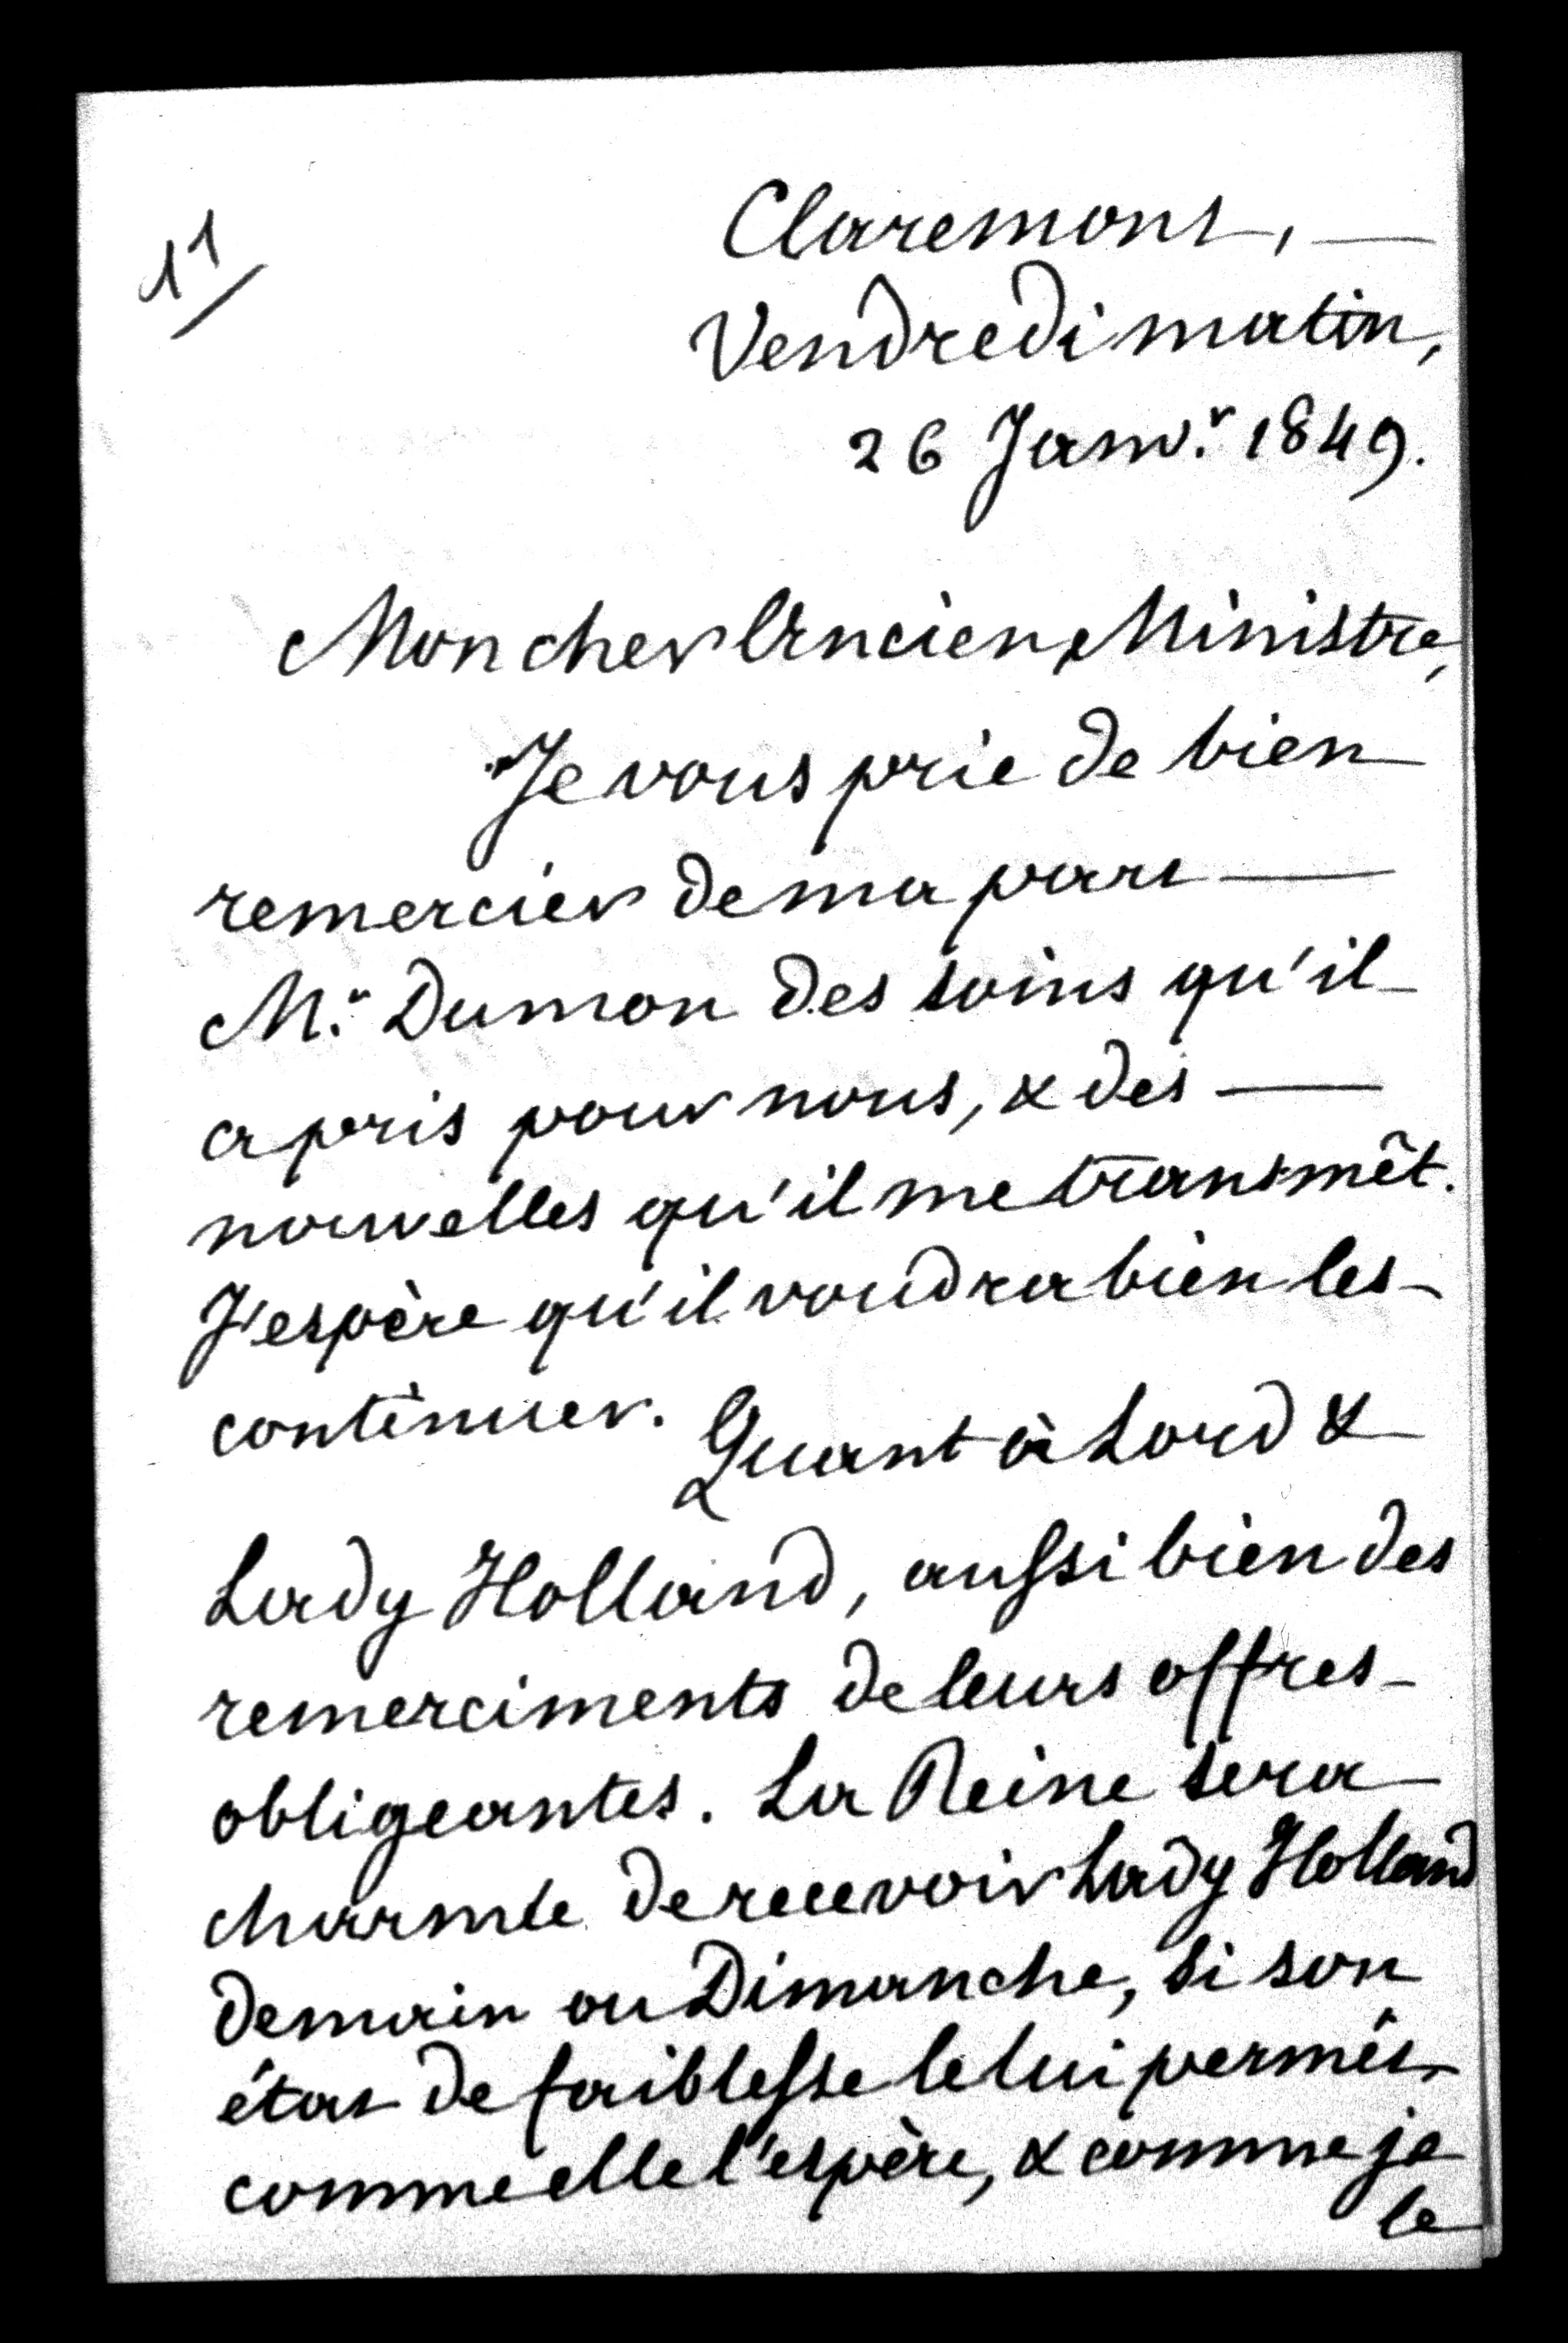 11
Claremont, —
Vendredi matin,
26 Janv.r 1849.
Mon cher Ancien Ministre,
Je vous prie de bien
remercier de ma part —
M.r Dumon des soins qu'il
a pris pour nous, & des —
nouvelles qu'il me transmêt.
J'espère qu'il voudra bien les
continuer. Quant à Lord &
Lady Holland, aussi bien des
remerciments de leurs offres
obligeantes. La Reine sera
charmée de recevoir Lady Holland
demain ou Dimanche, si son
état de faiblesse le lui permêt
comme elle l'espère, & comme je
le